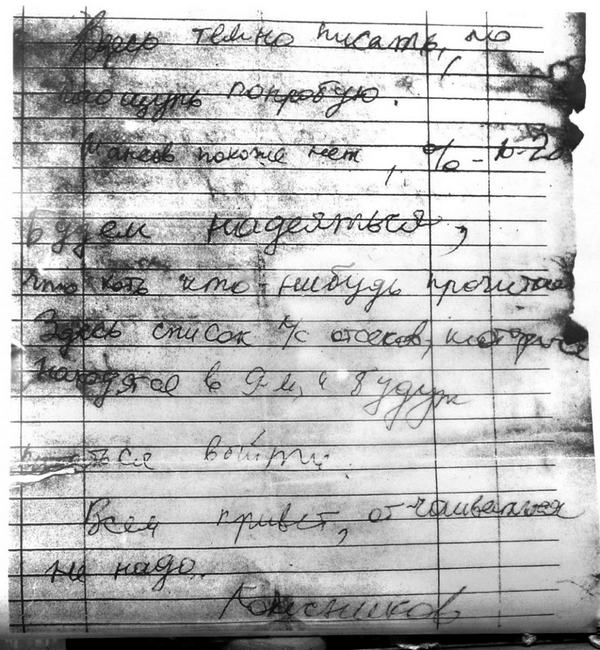 Здесь темно писать, но
наощупь попробую.
Шансов похоже нет, % - 10-20
Будем надеяться,
что хоть кто-нибудь прочитает
Здесь список л/с отсеков, которые
находятся в 9-м, и будут
пытаться выйти.
Всем привет, отчаиваться
не надо.
Колесников